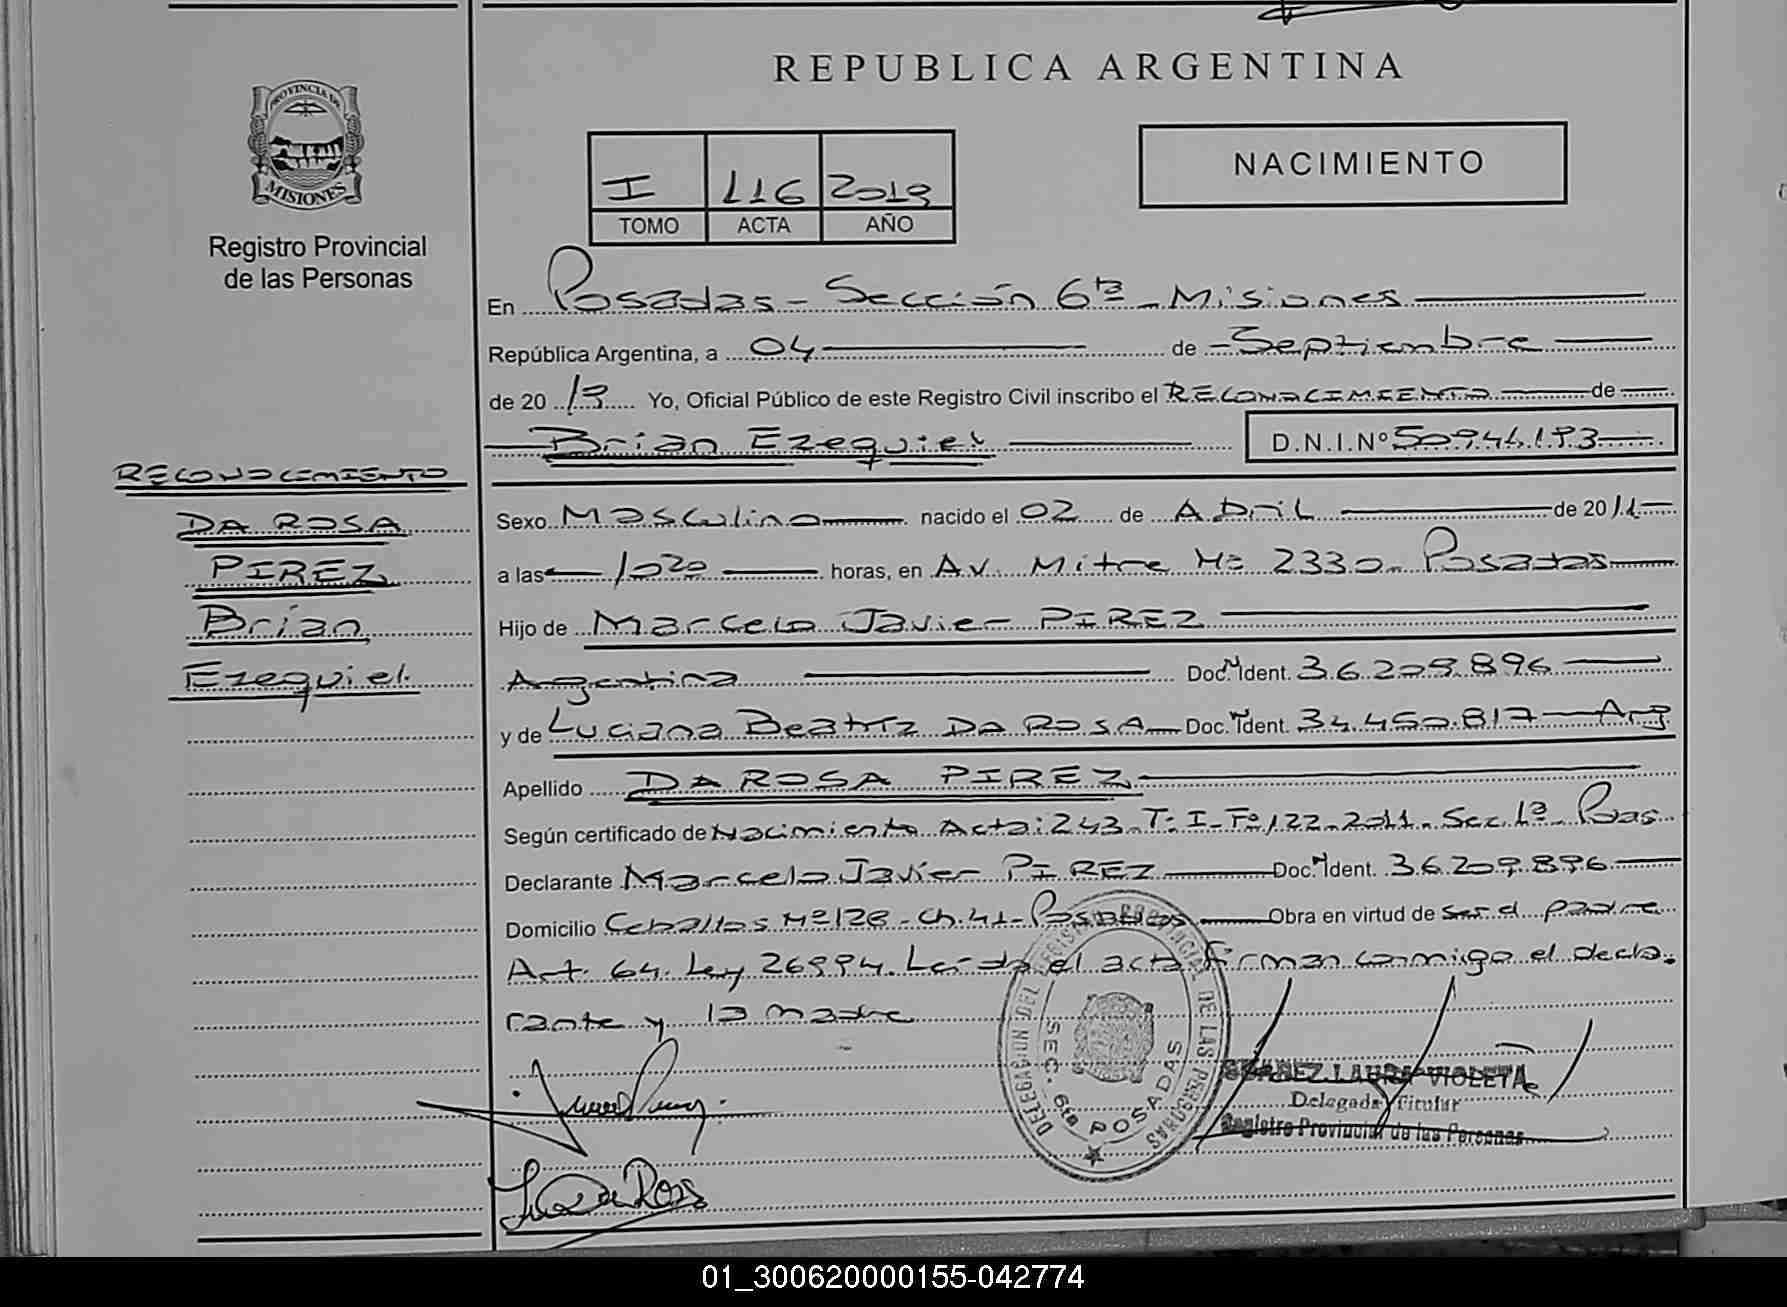 REPUBLICA ARGENTINA
PROVINCIA DE
MISIONES
Registro Provincial
de las Personas
NACIMIENTO
I 116 2019
TOMO ACTA AÑO
En Posadas - Sección 6ta - Misiones
República Argentina, a 04 de Septiembre
de 20 19 Yo, Oficial Público de este Registro Civil inscribo el RECONOCIMIENTO de
Brian Ezequiel D.N.I.Nº 50.944.193
RECONOCIMIENTO
DA ROSA
PIREZ
Brian
Ezequiel
Sexo Masculino nacido el 02 de Abril de 2011
a las 1020 horas, en Av. Mitre Nº 2330. Posadas
Hijo de Marcelo Javier PIREZ
Argentina Doc. Ident. 36.209.896
y de Luciana Beatriz DA ROSA Doc. Ident. 34.450.817 Arg
Apellido DA ROSA PIREZ
Según certificado de Nacimiento Acta: 243. Tº I - Fº 122 - 2011. Sec. 1ª Posas
Declarante Marcelo Javier PIREZ Doc. Ident. 36.209.896
Domicilio Ceballos Nº 128 - Ch. 41 - Posadas Obra en virtud de ser el padre
Art. 64. Ley 26994. Leída el acta firman conmigo el decla-
rante y la madre
DELEGACION DEL REGISTRO PROVINCIAL DE LAS PERSONAS
SEC. 6ta POSADAS
LAURA VIOLETA
Delegada Titular
Registro Provincial de las Personas
Da Rosa
01_300620000155-042774